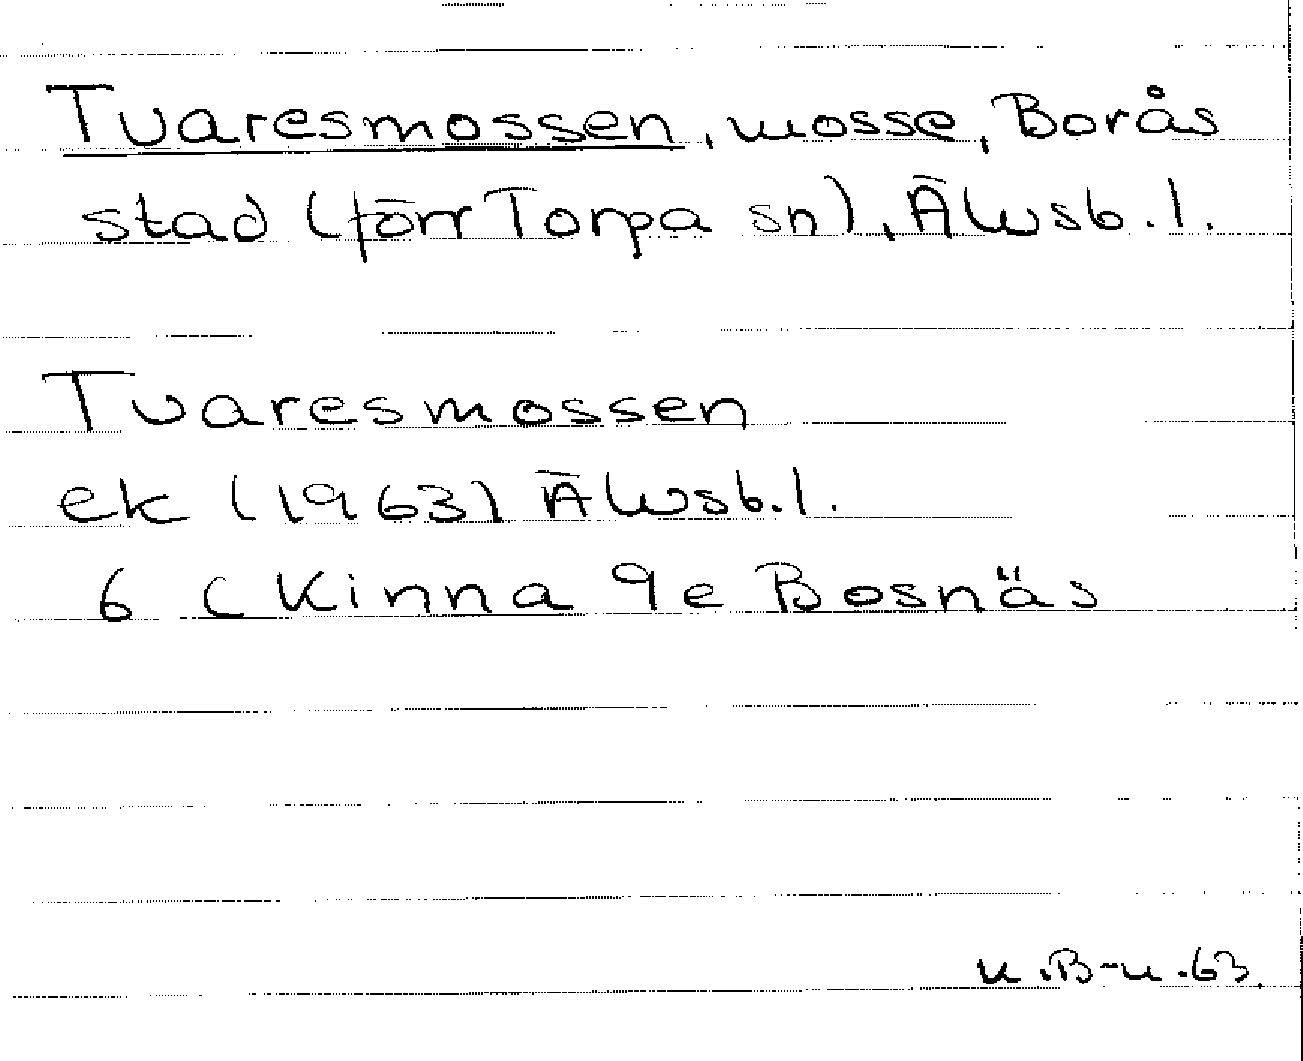 Tvaresmossen, mosse, Borås
stad (förr Torpa sn), Älvsb. l.
Tvaresmossen
ek (1963) Älvsb. l.
6 C Kinna 9e Bosnäs